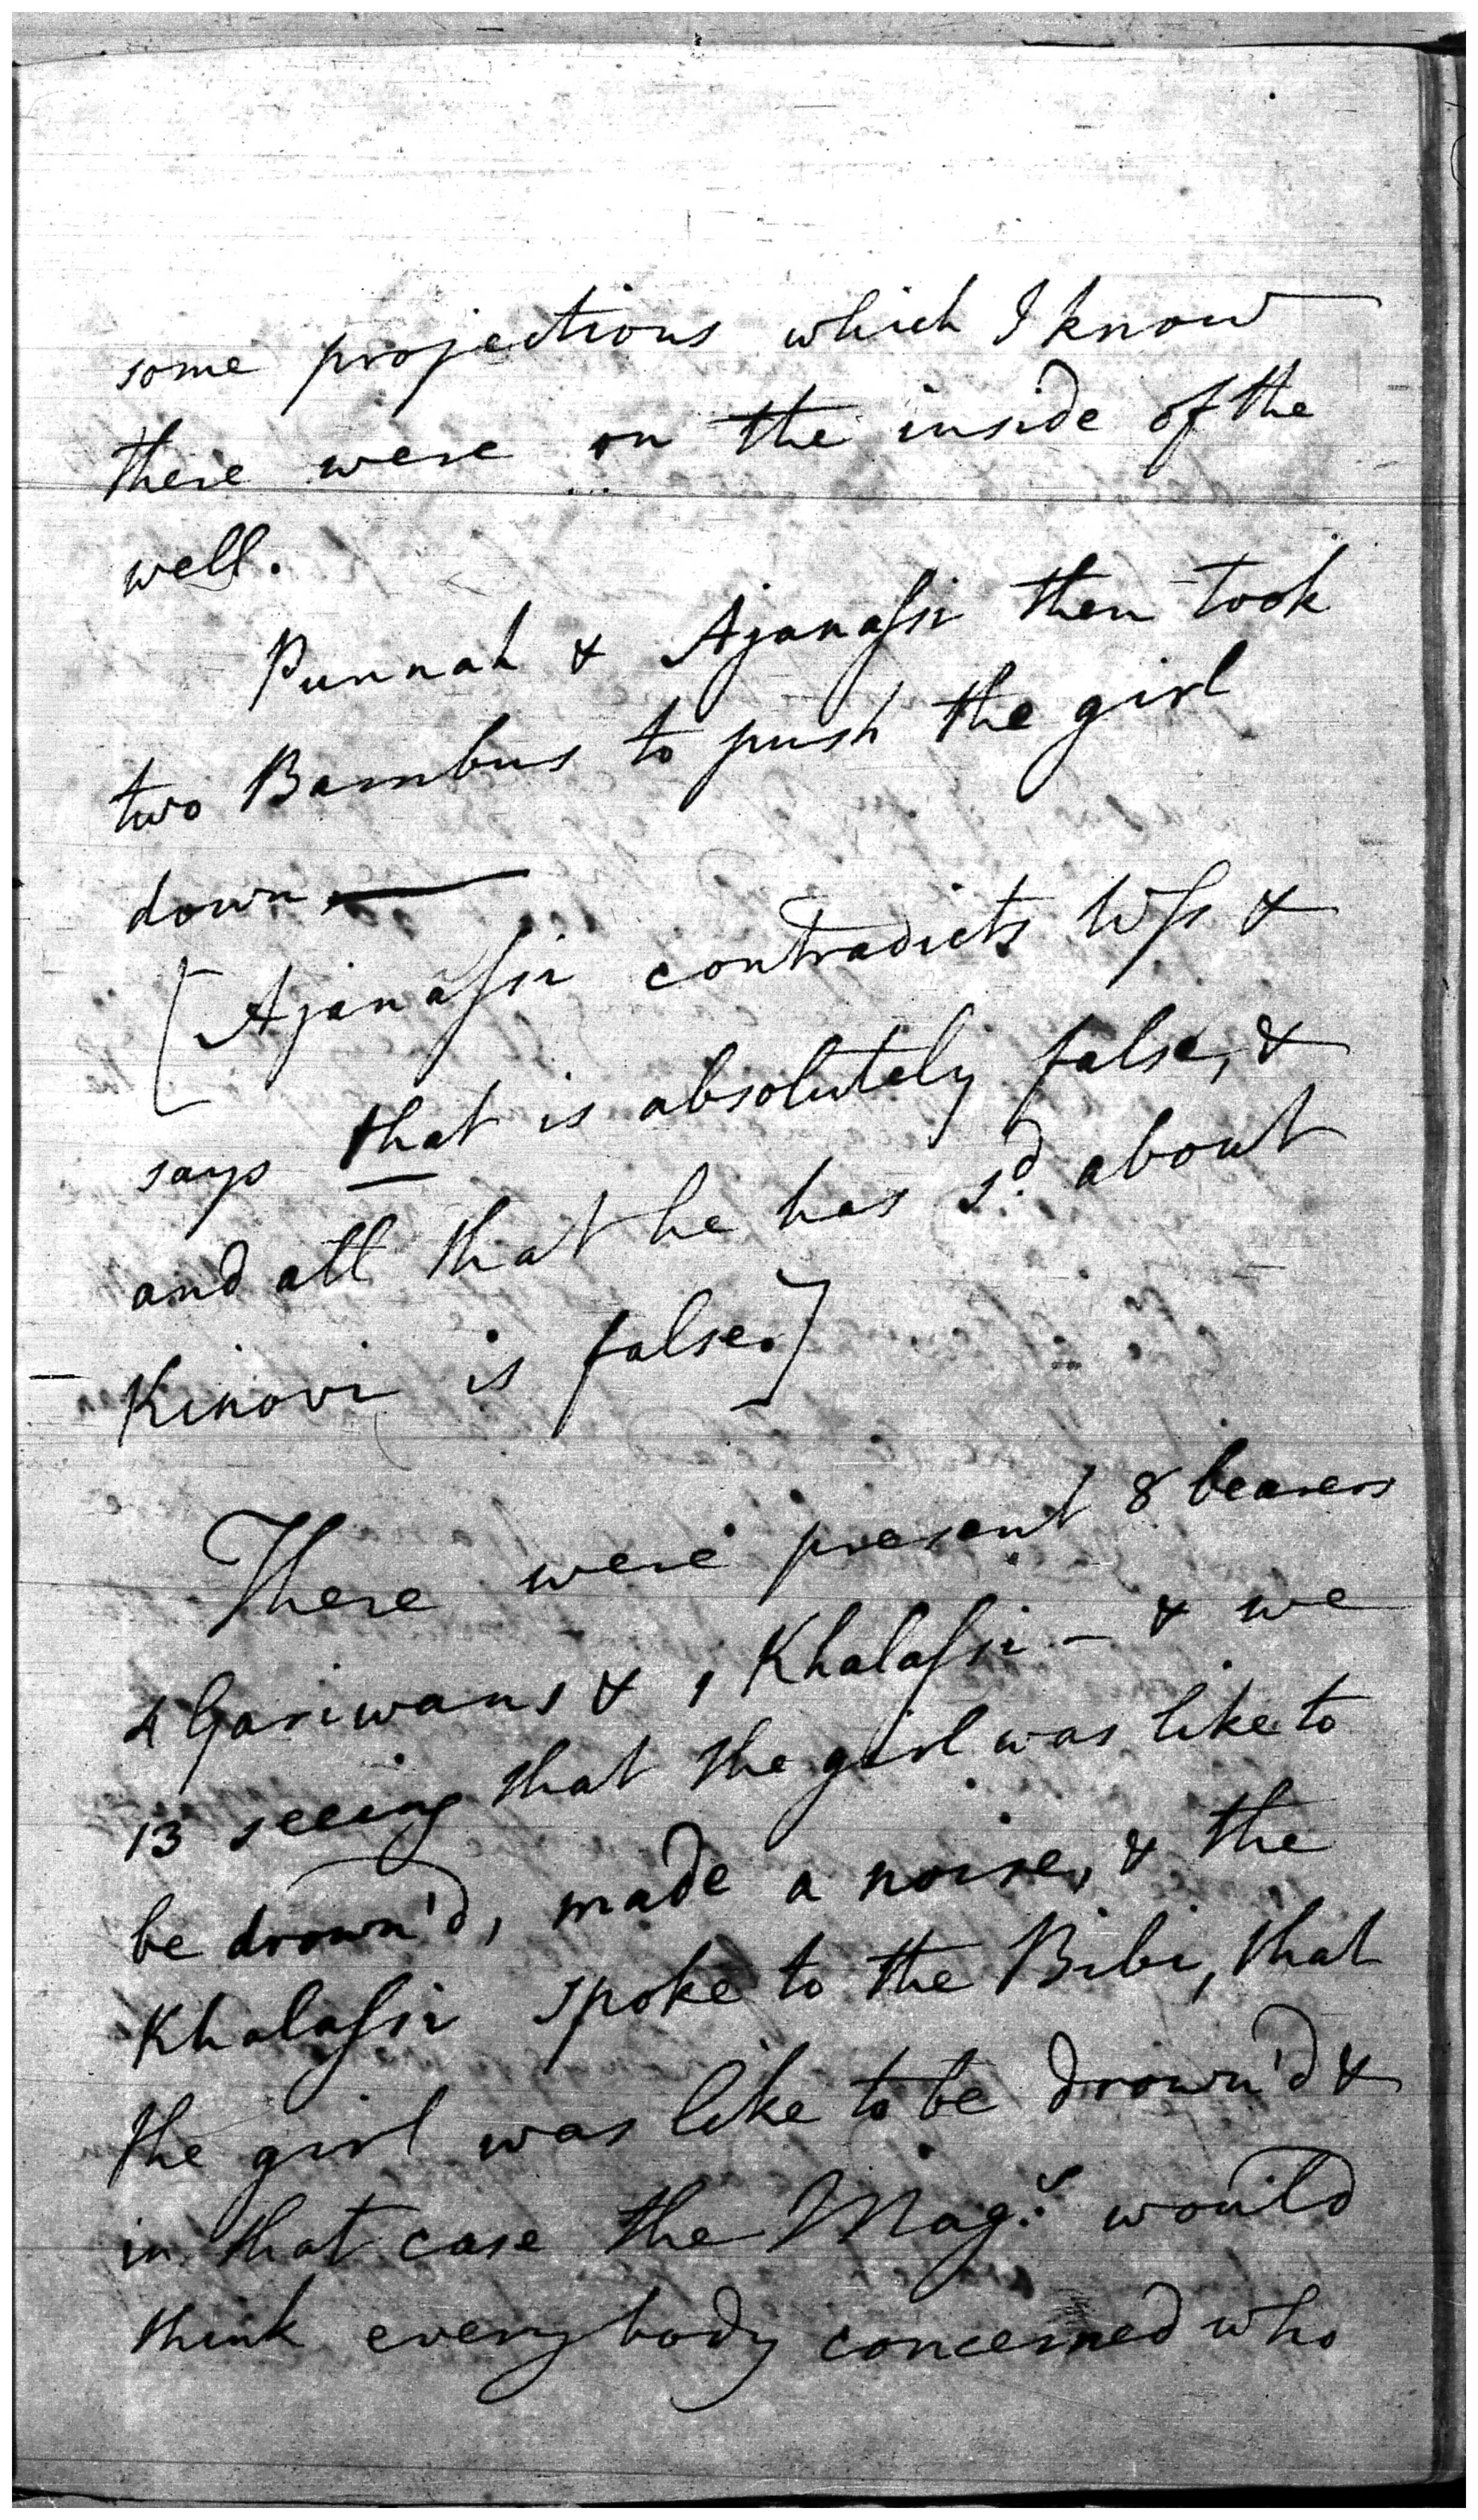 some projections which I know
there were on the inside of the
well.
Punnah & Ajanassi then took
two Bambus to push the girl
down —
[Ajanassi contradicts Wss &
says that is absolutely false, &
and all that he has sd. about
Kinovi is false.]
There were present 8 bearers
4 Gariwans & 1 Khalassi – & we
13 seeing that the girl was like to
be drown'd, made a noise, & the
Khalassi spoke to the Bibi, that
the girl was like to be drown'd &
in that case the Mag.s would
think every body concerned who